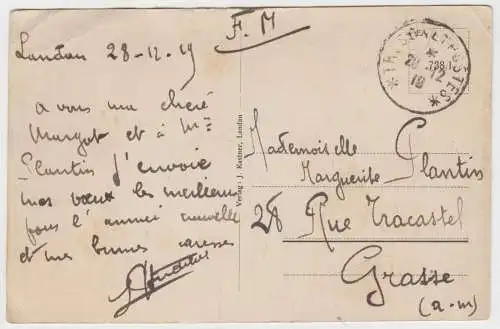 F.M
Landau 28-12-19
a vous ma chere
Margot et à Mme
Plantin j'envoie
mes vœux les meilleurs
pour l'année nouvelle
et mes bonnes caresses
Verlag: J. Kestner, Landau
TRESOR ET POSTES
28 -12
19
Mademoiselle
Marguerite Plantin
28 Rue Tracastel
Grasse
(a-m)